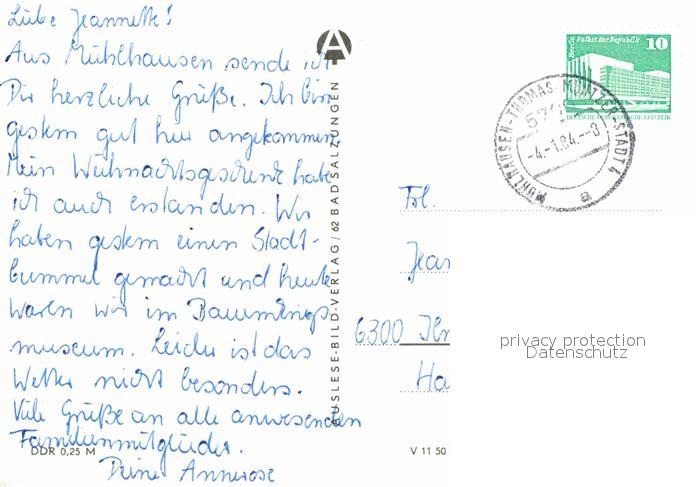 Liebe Jeannette!
Aus Mühlhausen sende ich
Dir herzliche Grüße. Ich bin
gestern gut hier angekommen.
Mein Weihnachtsgeschenk habe
ich auch erstanden. Wir
haben gestern einen Stadt-
bummel gemacht und heute
waren wir im Bauernkriegs-
museum. Leider ist das
Wetter nicht besonders.
Viele Grüße an alle anwesenden
Familienmitglieder.
Deine Annerose
DDR 0,25 M
A
AUSLESE-BILD-VERLAG / 62 BAD SALZUNGEN
V 11 50
Berlin Palast der Republik
10
DEUTSCHE DEMOKRATISCHE REPUBLIK
MÜHLHAUSEN-THOMAS-MÜNTZER-STADT 4
-4.-1.84.--8
a
Frl.
Jean
6300 Ilm
Ha
privacy protection
Datenschutz